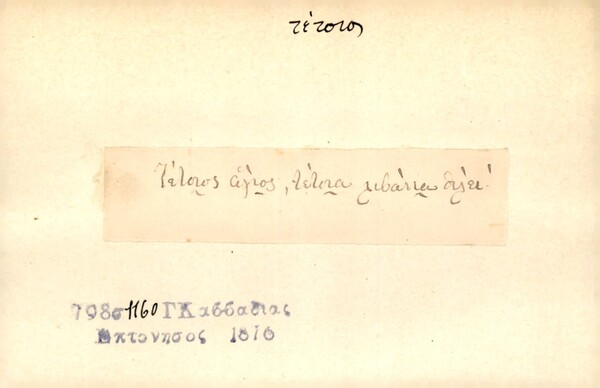 τέτοιος
Τέτοιος ἅγιος, τέτοια λιβάνια θέλει.
798σ1160 ΓΚαββαδιας
Επτανησος 1876